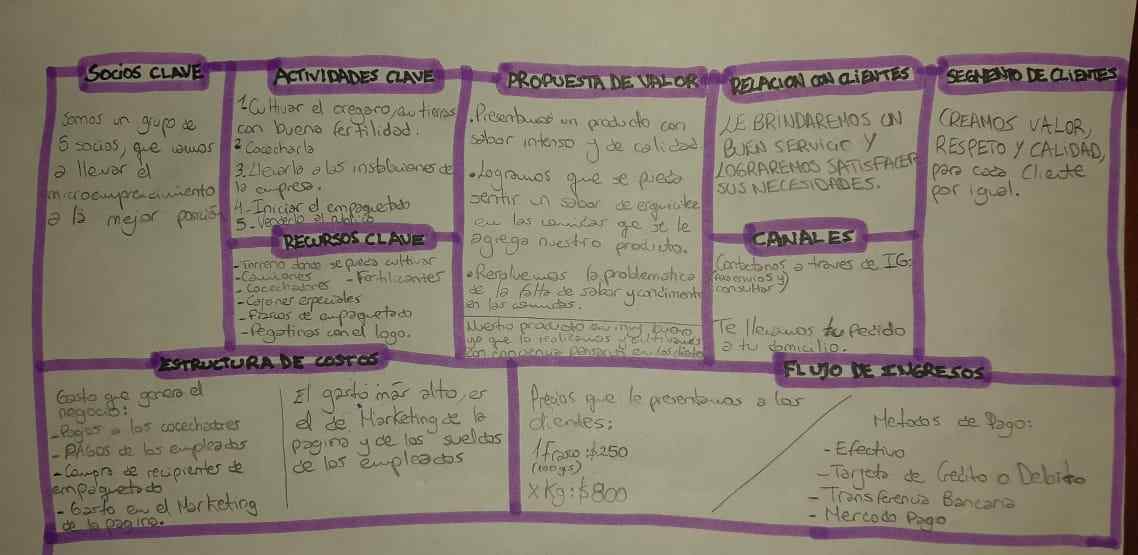 SOCIOS CLAVE
Somos un grupo de
5 socios, que vamos
a llevar el
microemprendimiento
a la mejor posición
ACTIVIDADES CLAVE
1. Cultivar el oregano, en tierras
con buena fertilidad.
2 Cocecharla
3. Llevarla a las instalaciones de
la empresa.
4- Iniciar el empaquetado
5- Venderlo al publico
RECURSOS CLAVE
- Terreno donde se pueda cultivar
- Camiones - Fertilizantes
- Cocechadores
- Cajones especiales
- Frascos de empaquetado
- Pegatinas con el logo.
PROPUESTA DE VALOR
• Presentamos un producto con
sabor intenso y de calidad.
• Logramos que se pueda
sentir un sabor de
en las comidas que se le
agrega nuestro producto.
• Resolvemos la problematica
de la falta de sabor y condimento
en las comidas.
Nuestro producto es muy bueno
ya que lo realizamos y cultivamos
con
RELACION CON CLIENTES
LE BRINDAREMOS UN
BUEN SERVICIO Y
LOGRAREMOS SATISFACER
SUS NECESIDADES.
CANALES
Contactanos a traves de IG:
consultas)
Te llevamos tu Pedido
a tu domicilio.
SEGMENTO DE CLIENTES
CREAMOS VALOR,
RESPETO Y CALIDAD,
para cada Cliente
por igual.
ESTRUCTURA DE COSTOS
Gasto que genera el
negocio:
- Pagos a los cocechadores
- PAGOS de los empleados
- Compra de recipientes de
empaquetado
- Gasto en el Marketing
de la pagina.
El gasto más alto, es
el de Marketing de la
pagina y de los sueldos
de los empleados
FLUJO DE INGRESOS
Precios que le presentamos a los
clientes:
1 Frasco: $250
(100gs)
X Kg: $800
Metodos de Pago:
- Efectivo
- Tarjeta de Credito o Debito
- Transferencia Bancaria
- Mercado Pago